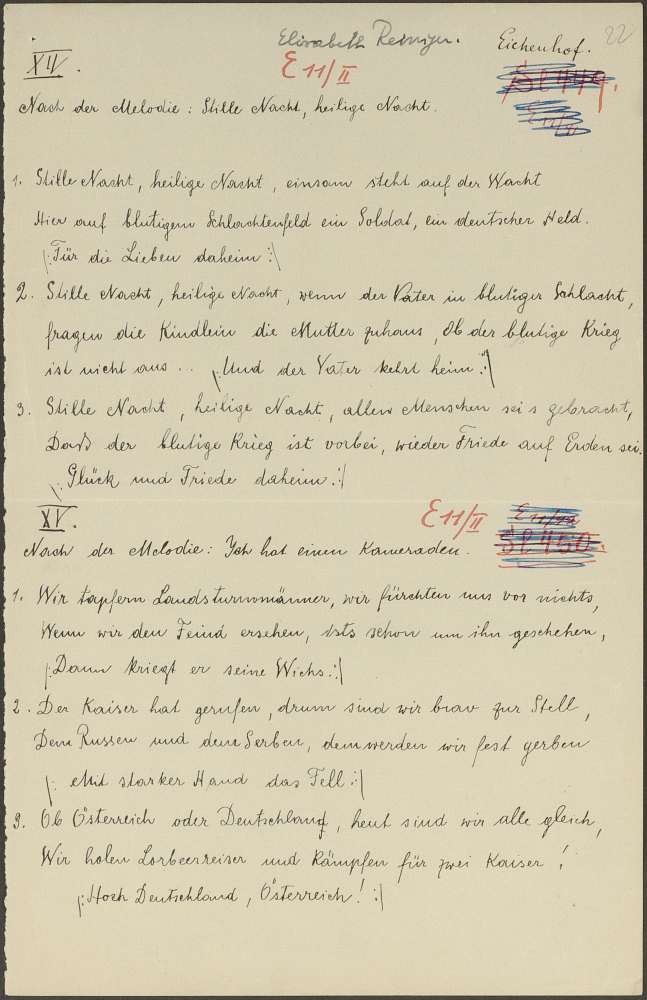 Elisabeth Reiniger. Eichenhof. 22
XIV. E 11/II Sl 449.
Nach der Melodie: Stille Nacht, heilige Nacht.
1. Stille Nacht, heilige Nacht, einsam steht auf der Wacht
Hier auf blutigem Schlachtenfeld ein Soldat, ein deutscher Held.
|: Für die Lieben daheim :|
2. Stille Nacht, heilige Nacht, wenn der Vater in blutiger Schlacht,
fragen die Kindlein die Mutter zuhaus, Ob der blutige Krieg
ist nicht aus... |: Und der Vater kehrt heim :|
3. Stille Nacht, heilige Nacht, allen Menschen sei s gebracht,
Daß der blutige Krieg ist vorbei, wieder Friede auf Erden sei.
|: Glück und Friede daheim. :|
XV. E 11/II Sl 450.
Nach der Melodie: Ich hat einen Kameraden.
1. Wir tapfern Landsturmmänner, wir fürchten uns vor nichts,
Wenn wir den Feind ersehen, ists schon um ihn geschehen,
|: Dann kriegt er seine Wichs. :|
2. Der Kaiser hat gerufen, drum sind wir brav zur Stell,
Dem Russen und dem Serben, dem werden wir fest gerben
|: Mit starker Hand das Fell :|
3. Ob Österreich oder Deutschland, heut sind wir alle gleich,
Wir holen Lorbeerreiser und kämpfen für zwei Kaiser!
|: Hoch Deutschland, Österreich! :|